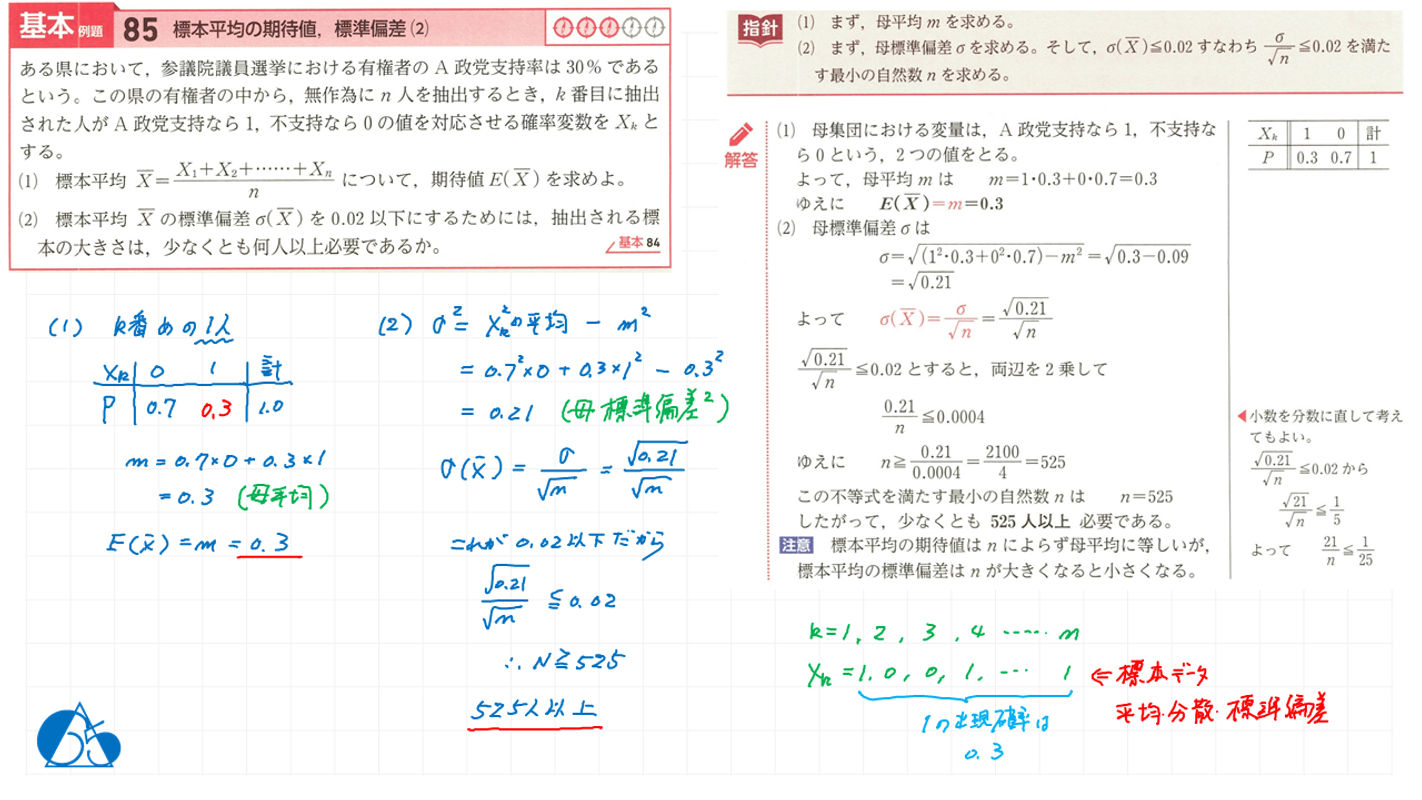 基本 例題 85 標本平均の期待値，標準偏差 (2)
ある県において，参議院議員選挙における有権者の A 政党支持率は 30% である
という。この県の有権者の中から，無作為に n 人を抽出するとき，k 番目に抽出
された人が A 政党支持なら 1，不支持なら 0 の値を対応させる確率変数を Xₖ と
する。
(1) 標本平均 X̄=(X₁+X₂+……+Xₙ)/n について，期待値 E(X̄) を求めよ。
(2) 標本平均 X̄ の標準偏差 σ(X̄) を 0.02 以下にするためには，抽出される標
本の大きさは，少なくとも何人以上必要であるか。
基本 84
(1) k番めの1人
Xₖ 0 1 計
P 0.7 0.3 1.0
m = 0.7×0 + 0.3×1
= 0.3 (母平均)
E(X̄) = m = 0.3
(2) σ² = Xₖ²の平均 − m²
= 0.7²×0 + 0.3×1² − 0.3²
= 0.21 (母標準偏差²)
σ(X̄) = σ/√n = √0.21/√n
これが 0.02以下だから
√0.21/√n ≦ 0.02
∴ N ≧ 525
525人以上
指針
(1) まず，母平均 m を求める。
(2) まず，母標準偏差 σ を求める。そして，σ(X̄)≦0.02 すなわち σ/√n ≦0.02 を満た
す最小の自然数 n を求める。
解答
(1) 母集団における変量は，A 政党支持なら 1，不支持な
ら 0 という，2 つの値をとる。
よって，母平均 m は m=1・0.3+0・0.7=0.3
ゆえに E(X̄)=m=0.3
Xₖ 1 0 計
P 0.3 0.7 1
(2) 母標準偏差 σ は
σ=√((1²・0.3+0²・0.7)−m²)=√(0.3−0.09)
=√0.21
よって σ(X̄)=σ/√n=√0.21/√n
√0.21/√n ≦0.02 とすると，両辺を 2 乗して
0.21/n ≦0.0004
ゆえに n≧0.21/0.0004=2100/4=525
この不等式を満たす最小の自然数 n は n=525
したがって，少なくとも 525 人以上 必要である。
注意 標本平均の期待値は n によらず母平均に等しいが，
標本平均の標準偏差は n が大きくなると小さくなる。
◀小数を分数に直して考え
てもよい。
√0.21/√n ≦0.02 から
√21/√n ≦ 1/5
よって 21/n ≦ 1/25
k=1, 2, 3, 4 ‥‥‥ n
Xₖ = 1, 0, 0, 1, ‥‥ 1 ⇐ 標本データ
平均・分散・標準偏差
1の出現確率は
0.3